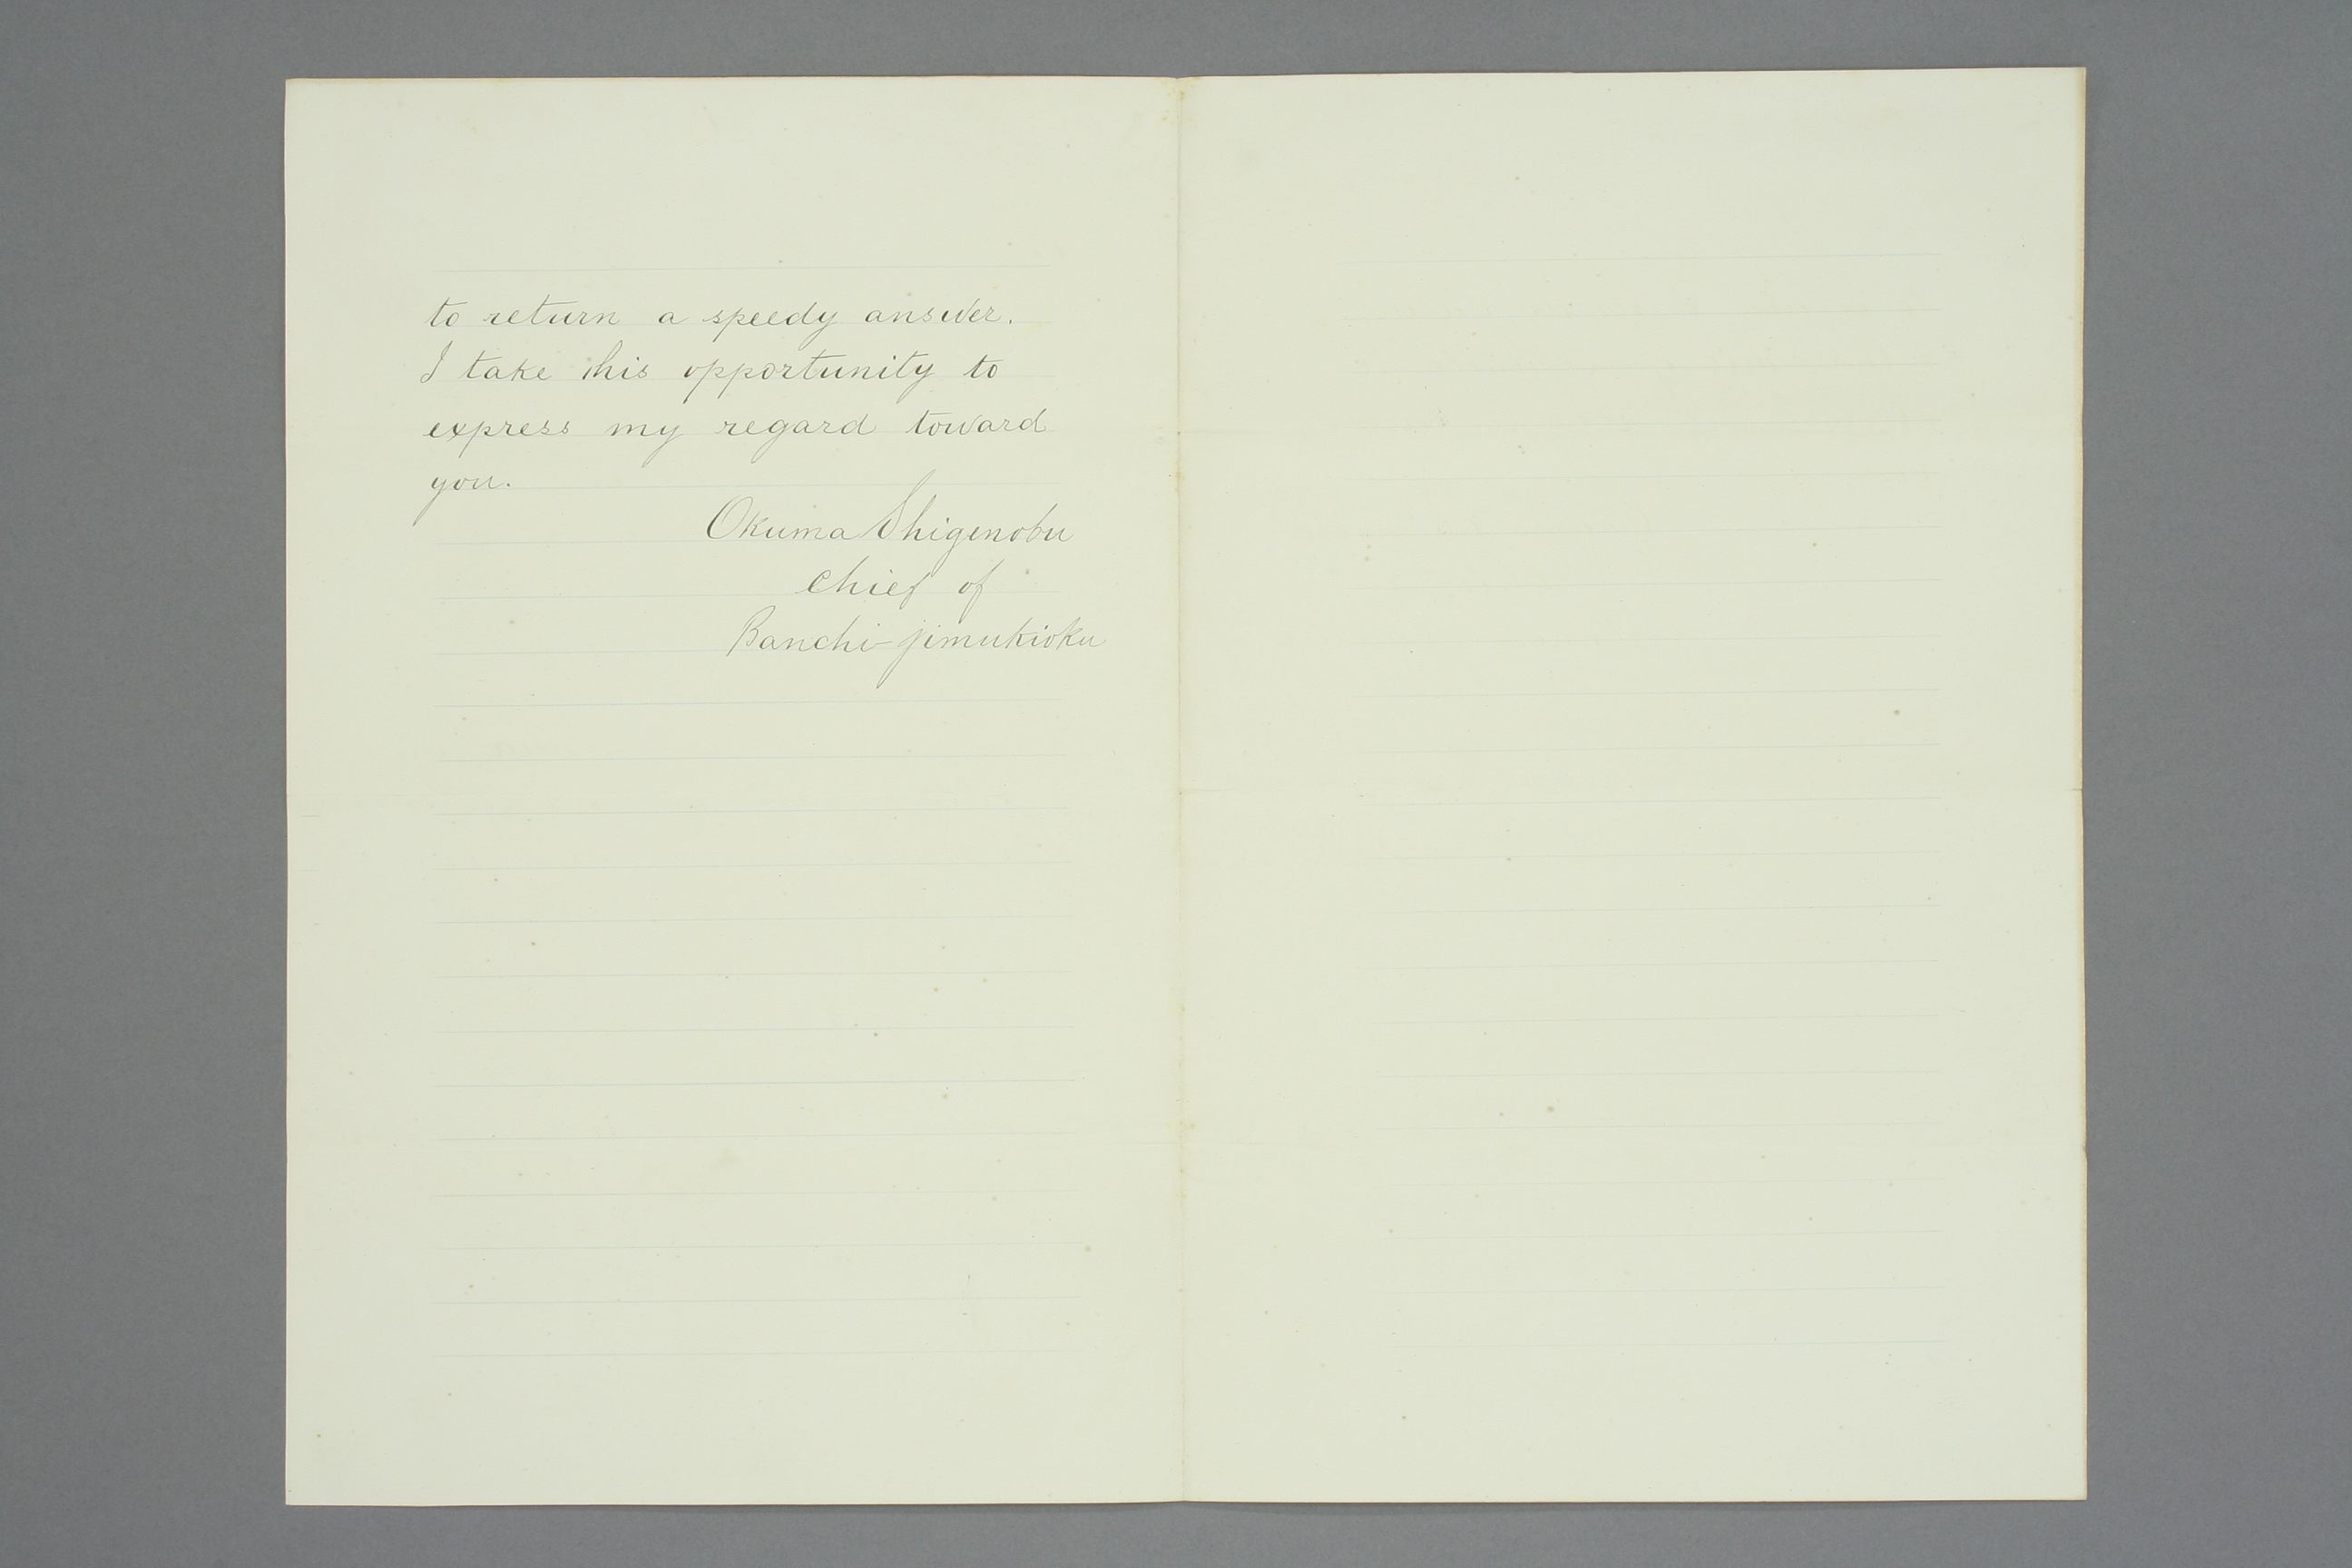 to return a speedy answer.
I take this opportunity to
express my regard toward
you.
Okuma Shigenobu
Chief of
Banchi-jimukioku